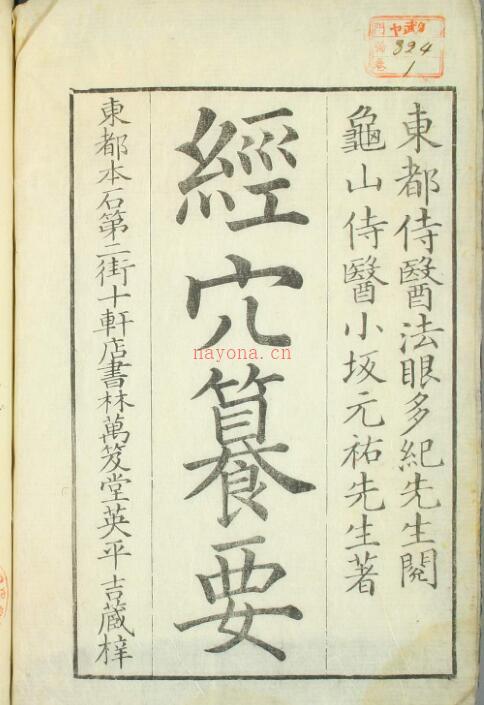 東都侍醫法眼多紀先生閲
龜山侍醫小坂元祐先生著
經穴籑要
東都本石第二街十軒店書林萬笈堂英平吉藏梓
nayona.cn
394
1